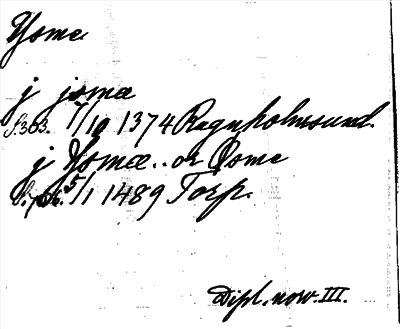 Ysme
j jsmæ
S. 303. 7/10 1374 Ragnholmsund.
j Ysmæ.. or Osme
5/1 1489 Torp.
Dipl. norv. III.